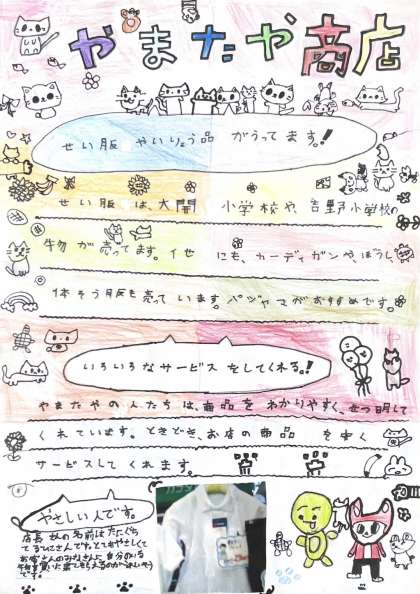 やまたや商店
せい服やいりょう品がうってます。!
せい服は、大開小学校や、吉野小学校の
物が売ってます。イセにも、カーディガンや、ぼうし、
体そう服も売っています。パジャマがおすすめです。
いろいろなサービスをしてくれる。!
やまたやの人たちは、商品をわかりやすく、せつ明して
くれています。ときどき、お店の商品を安く
サービスしてくれます。
やさしい人です。
店長さんの名前はたにぐち
てるひこさんです。とてもやさしくて
お客さんのみなさんに自分のみせ
です。